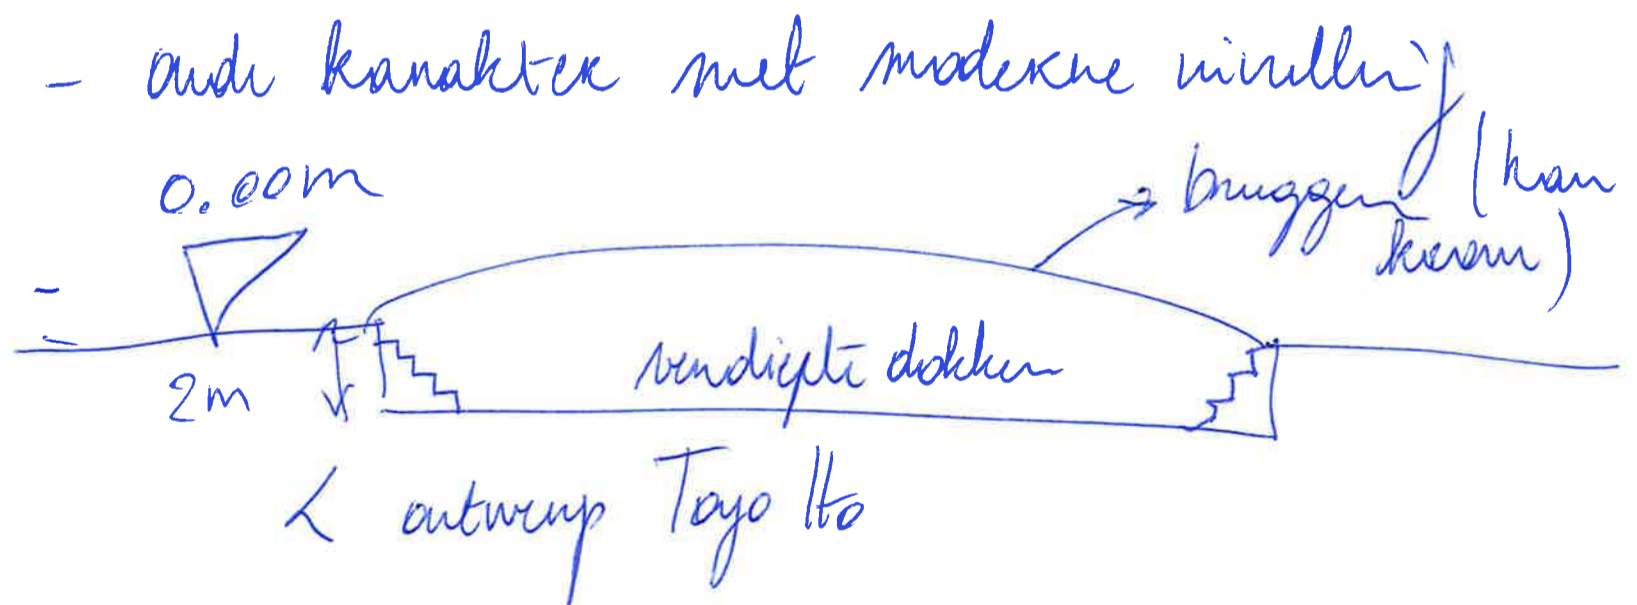 - oude karakter met moderne invulling
0.00m
bruggen (han
-
2m
verdiepte dokken
< ontwerp Toyo Ito